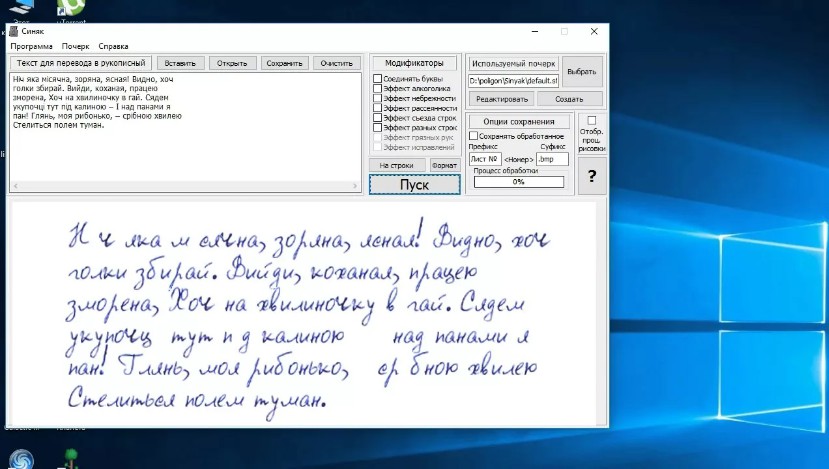 Синяк
Программа Почерк Справка
Текст для перевода в рукописный Вставить Открыть Сохранить Очистить
Ніч яка місячна, зоряна, ясная! Видно, хоч
голки збирай. Вийди, коханая, працею
зморена, Хоч на хвилиночку в гай. Сядем
укупочці тут під калиною – І над панами я
пан! Глянь, моя рибонько, – срібною хвилею
Стелиться полем туман.
Модификаторы
Соединять буквы
Эффект алкоголика
Эффект небрежности
Эффект рассеянности
Эффект съезда строк
Эффект разных строк
Эффект грязных рук
Эффект исправлений
На строки Формат
Пуск
Используемый почерк
D:\poligon\Sinyak\default.sf
Выбрать
Редактировать Создать
Опции сохранения
Сохранять обработанное
Префикс Суфикс
Лист № <Номер> .bmp
Процесс обработки
0%
Отобр.
проц.
рисовки
?
Н ч яка м сячна, зоряна, ясная! Видно, хоч
голки збирай. Вийди, коханая, працею
зморена, Хоч на хвилиночку в гай. Сядем
укупочц тут п д калиною над панами я
пан! Глянь, моя рибонько, ср бною хвилею
Стелиться полем туман.